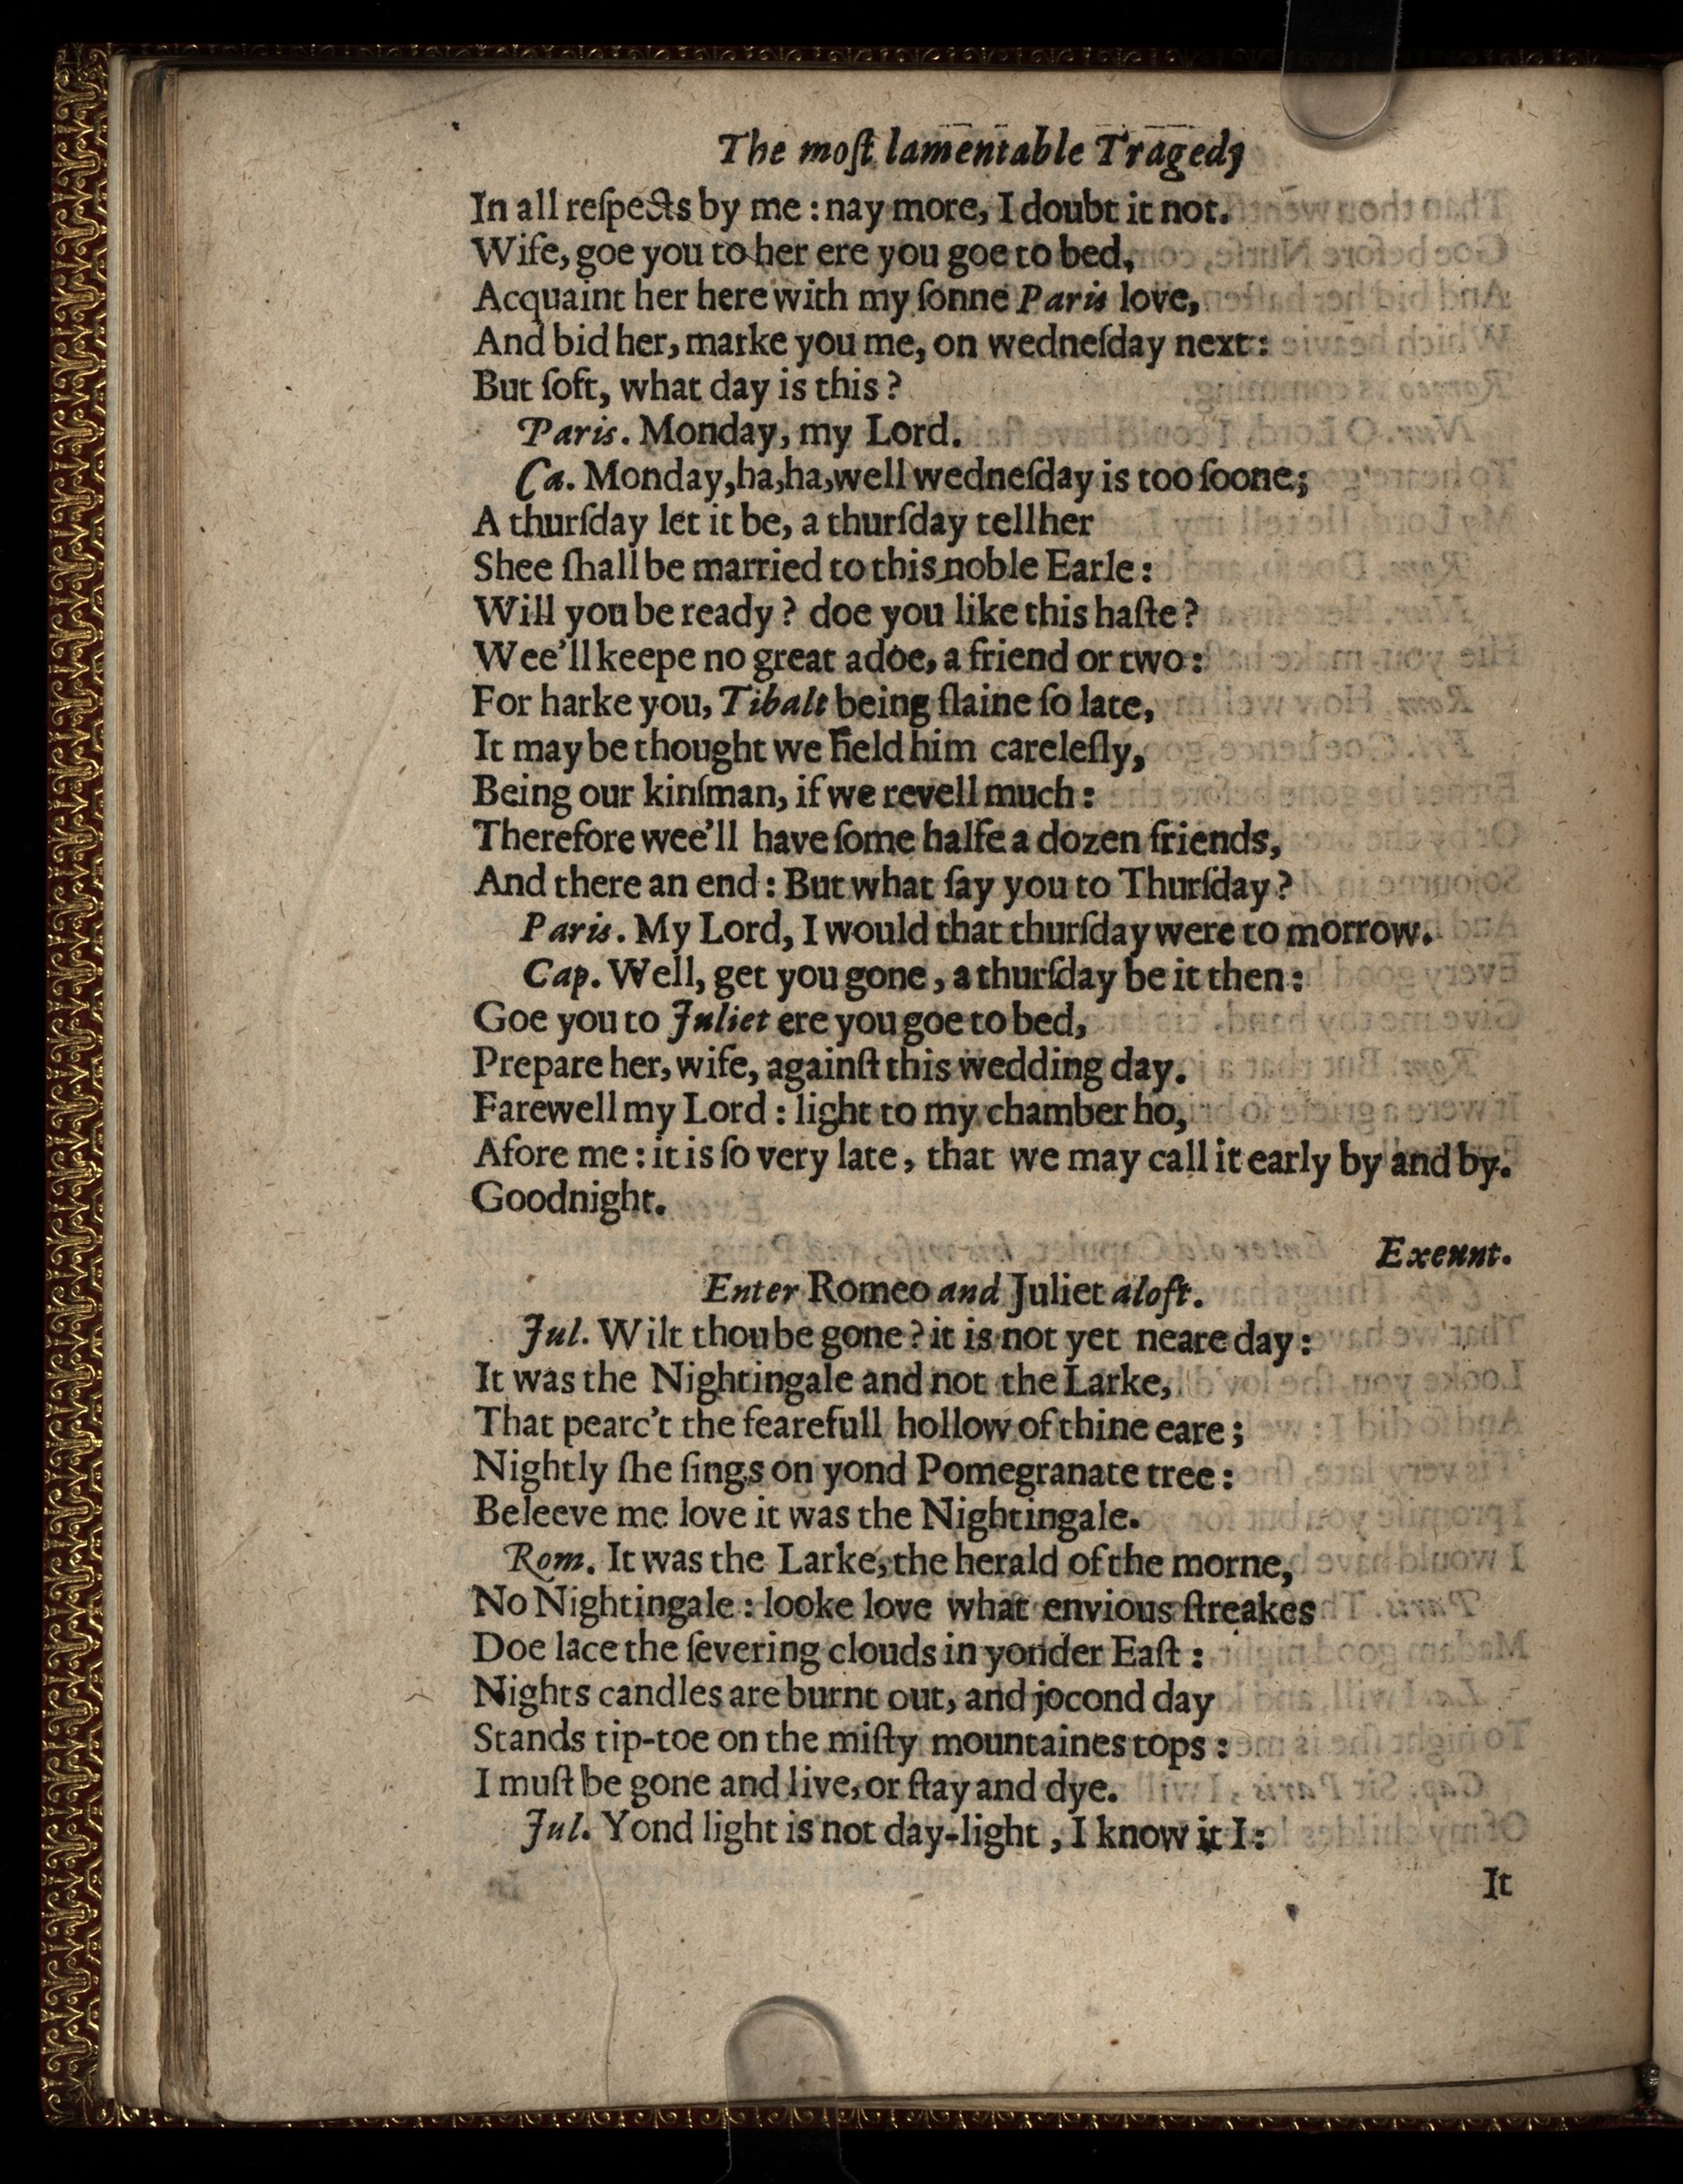 The moſt lamentable Tragedy
In all reſpects by me : nay more, I doubt it not.
Wife, goe you to her ere you goe to bed,
Acquaint her here with my ſonne Paris love,
And bid her, marke you me, on wedneſday next :
But ſoft, what day is this ?
Paris. Monday, my Lord.
Ca. Monday, ha, ha, well wedneſday is too ſoone;
A thurſday let it be, a thurſday tell her
Shee ſhall be married to this noble Earle :
Will you be ready ? doe you like this haſte ?
Wee'll keepe no great adoe, a friend or two :
For harke you, Tibalt being ſlaine ſo late,
It may be thought we held him careleſly,
Being our kinſman, if we revell much :
Therefore wee'll have ſome halfe a dozen friends,
And there an end : But what ſay you to Thurſday ?
Paris. My Lord, I would that thurſday were to morrow.
Cap. Well, get you gone, a thurſday be it then :
Goe you to Juliet ere you goe to bed,
Prepare her, wife, againſt this wedding day.
Farewell my Lord : light to my chamber ho,
Afore me : it is ſo very late, that we may call it early by and by.
Goodnight.
Exeunt.
Enter Romeo and Juliet aloft.
Jul. Wilt thou be gone ? it is not yet neare day :
It was the Nightingale and not the Larke,
That pearc't the fearefull hollow of thine eare ;
Nightly ſhe ſings on yond Pomegranate tree :
Beleeve me love it was the Nightingale.
Rom. It was the Larke, the herald of the morne,
No Nightingale : looke love what envious ſtreakes
Doe lace the ſevering clouds in yonder Eaſt :
Nights candles are burnt out, and jocond day
Stands tip-toe on the miſty mountaines tops :
I muſt be gone and live, or ſtay and dye.
Jul. Yond light is not day-light, I know it I :
It